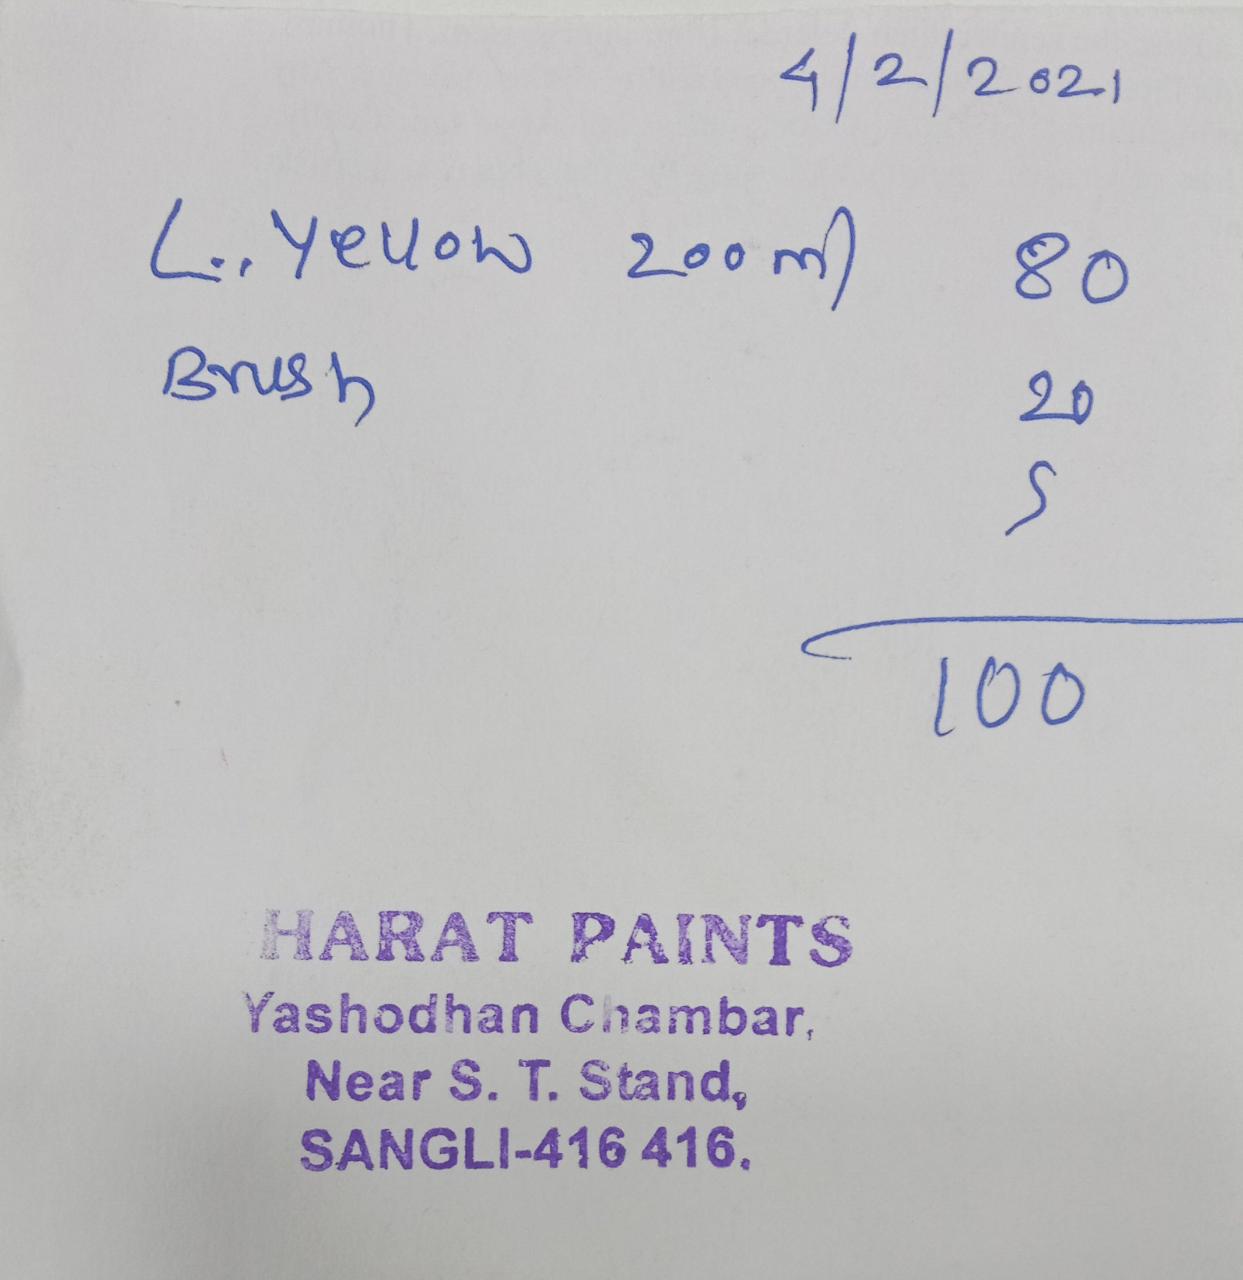 4/2/2021
L.. Yellow 200 ml 80
Brush 20
5
100
HARAT PAINTS
Yashodhan Chambar,
Near S. T. Stand,
SANGLI-416 416.